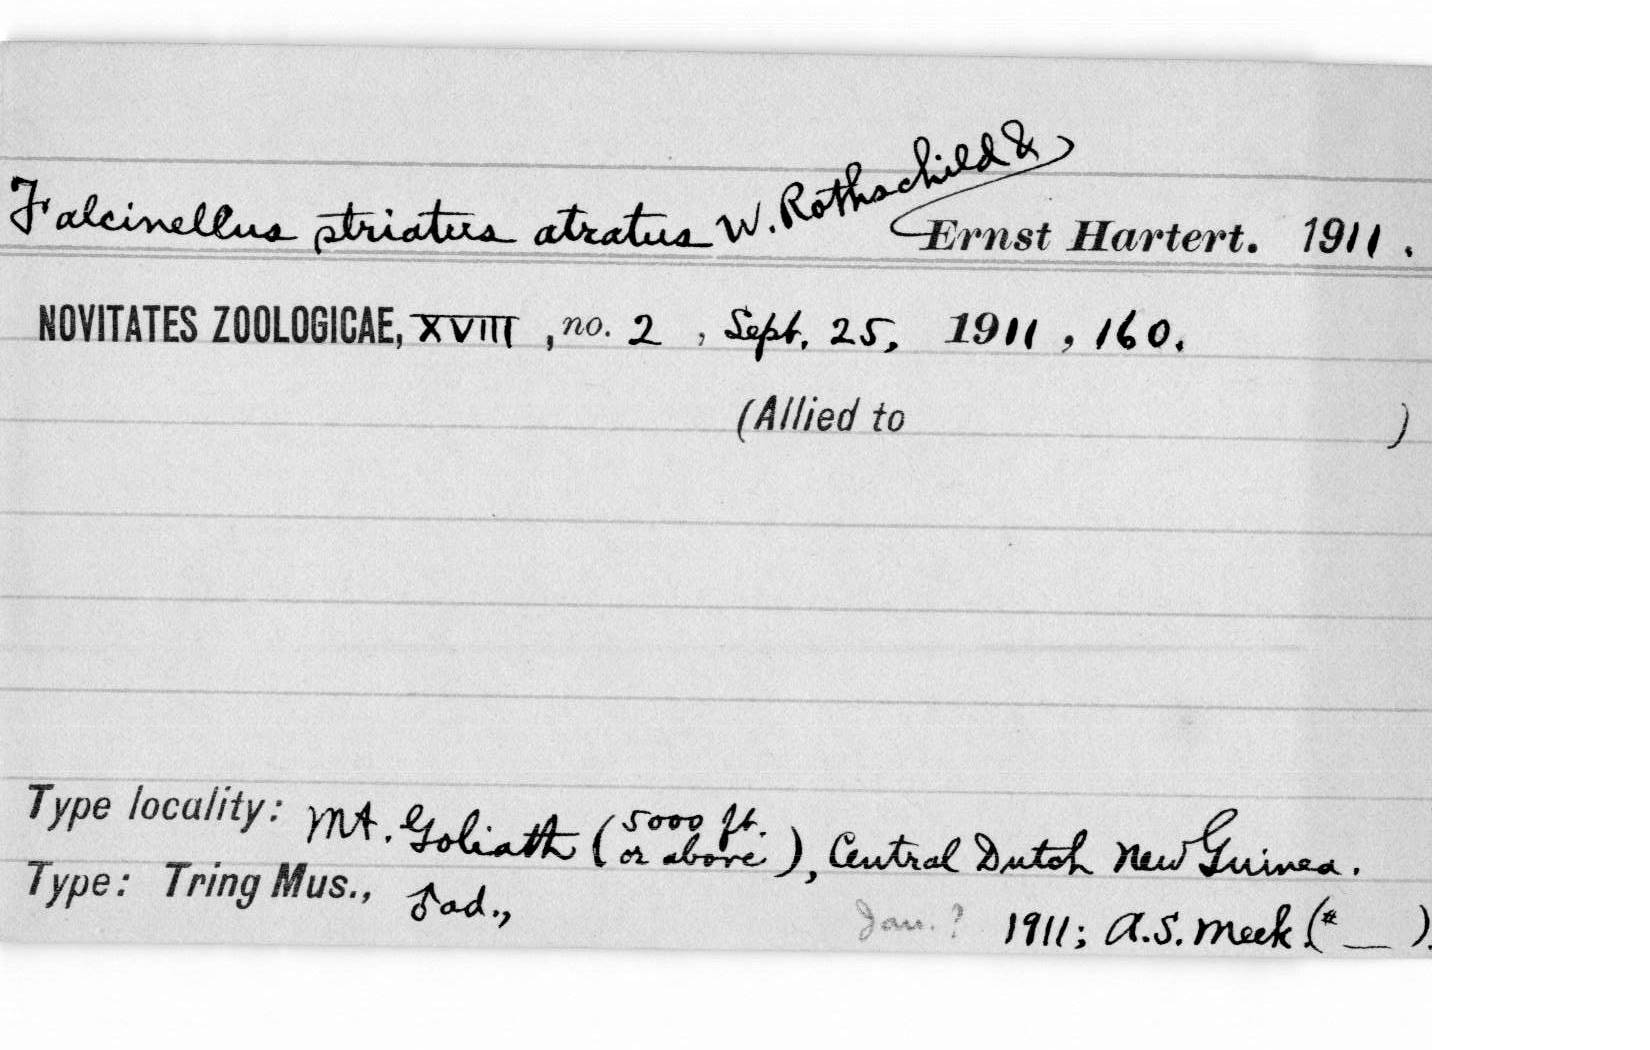 Falcinellus striatus atratus W. Rothschild &
Ernst Hartert. 1911.
NOVITATES ZOOLOGICAE, XVIII, no. 2, Sept. 25, 1911, 160.
(Allied to )
Type locality: Mt. Goliath (5000 ft. or above), Central Dutch New Guinea.
Type: Tring Mus., ♂ ad., Jan.? 1911; A.S. Meek (# __ ).